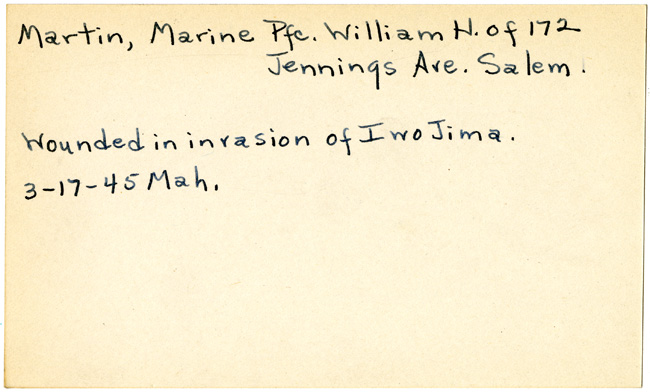 Martin, Marine Pfc. William H. of 172
Jennings Ave. Salem.
Wounded in invasion of Iwo Jima.
3-17-45 Mah.